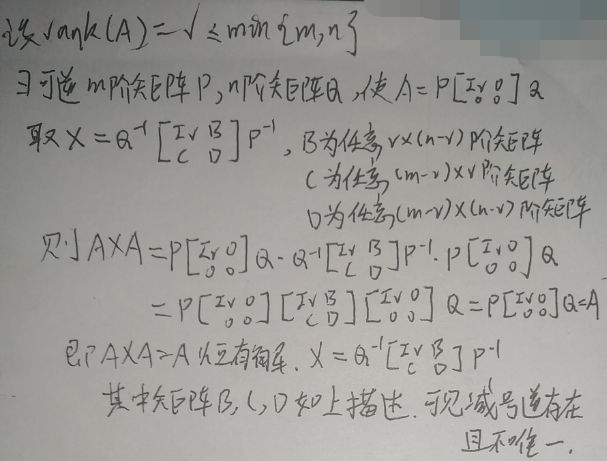 设rank(A)=r≤min{m,n}
∃可逆m阶矩阵P,n阶矩阵Q,使A=P[Ir 0 0 0]Q
取X=Q⁻¹[Ir B C D]P⁻¹,B为任意r×(n-r)阶矩阵
C为任意(m-r)×r阶矩阵
D为任意(m-r)×(n-r)阶矩阵
则AXA=P[Ir 0 0 0]Q·Q⁻¹[Ir B C D]P⁻¹·P[Ir 0 0 0]Q
=P[Ir 0 0 0][Ir B C D][Ir 0 0 0]Q=P[Ir 0 0 0]Q=A
即AXA=A必有解.X=Q⁻¹[Ir B C D]P⁻¹
其中矩阵B,C,D如上描述.可见减号逆存在
且不唯一.